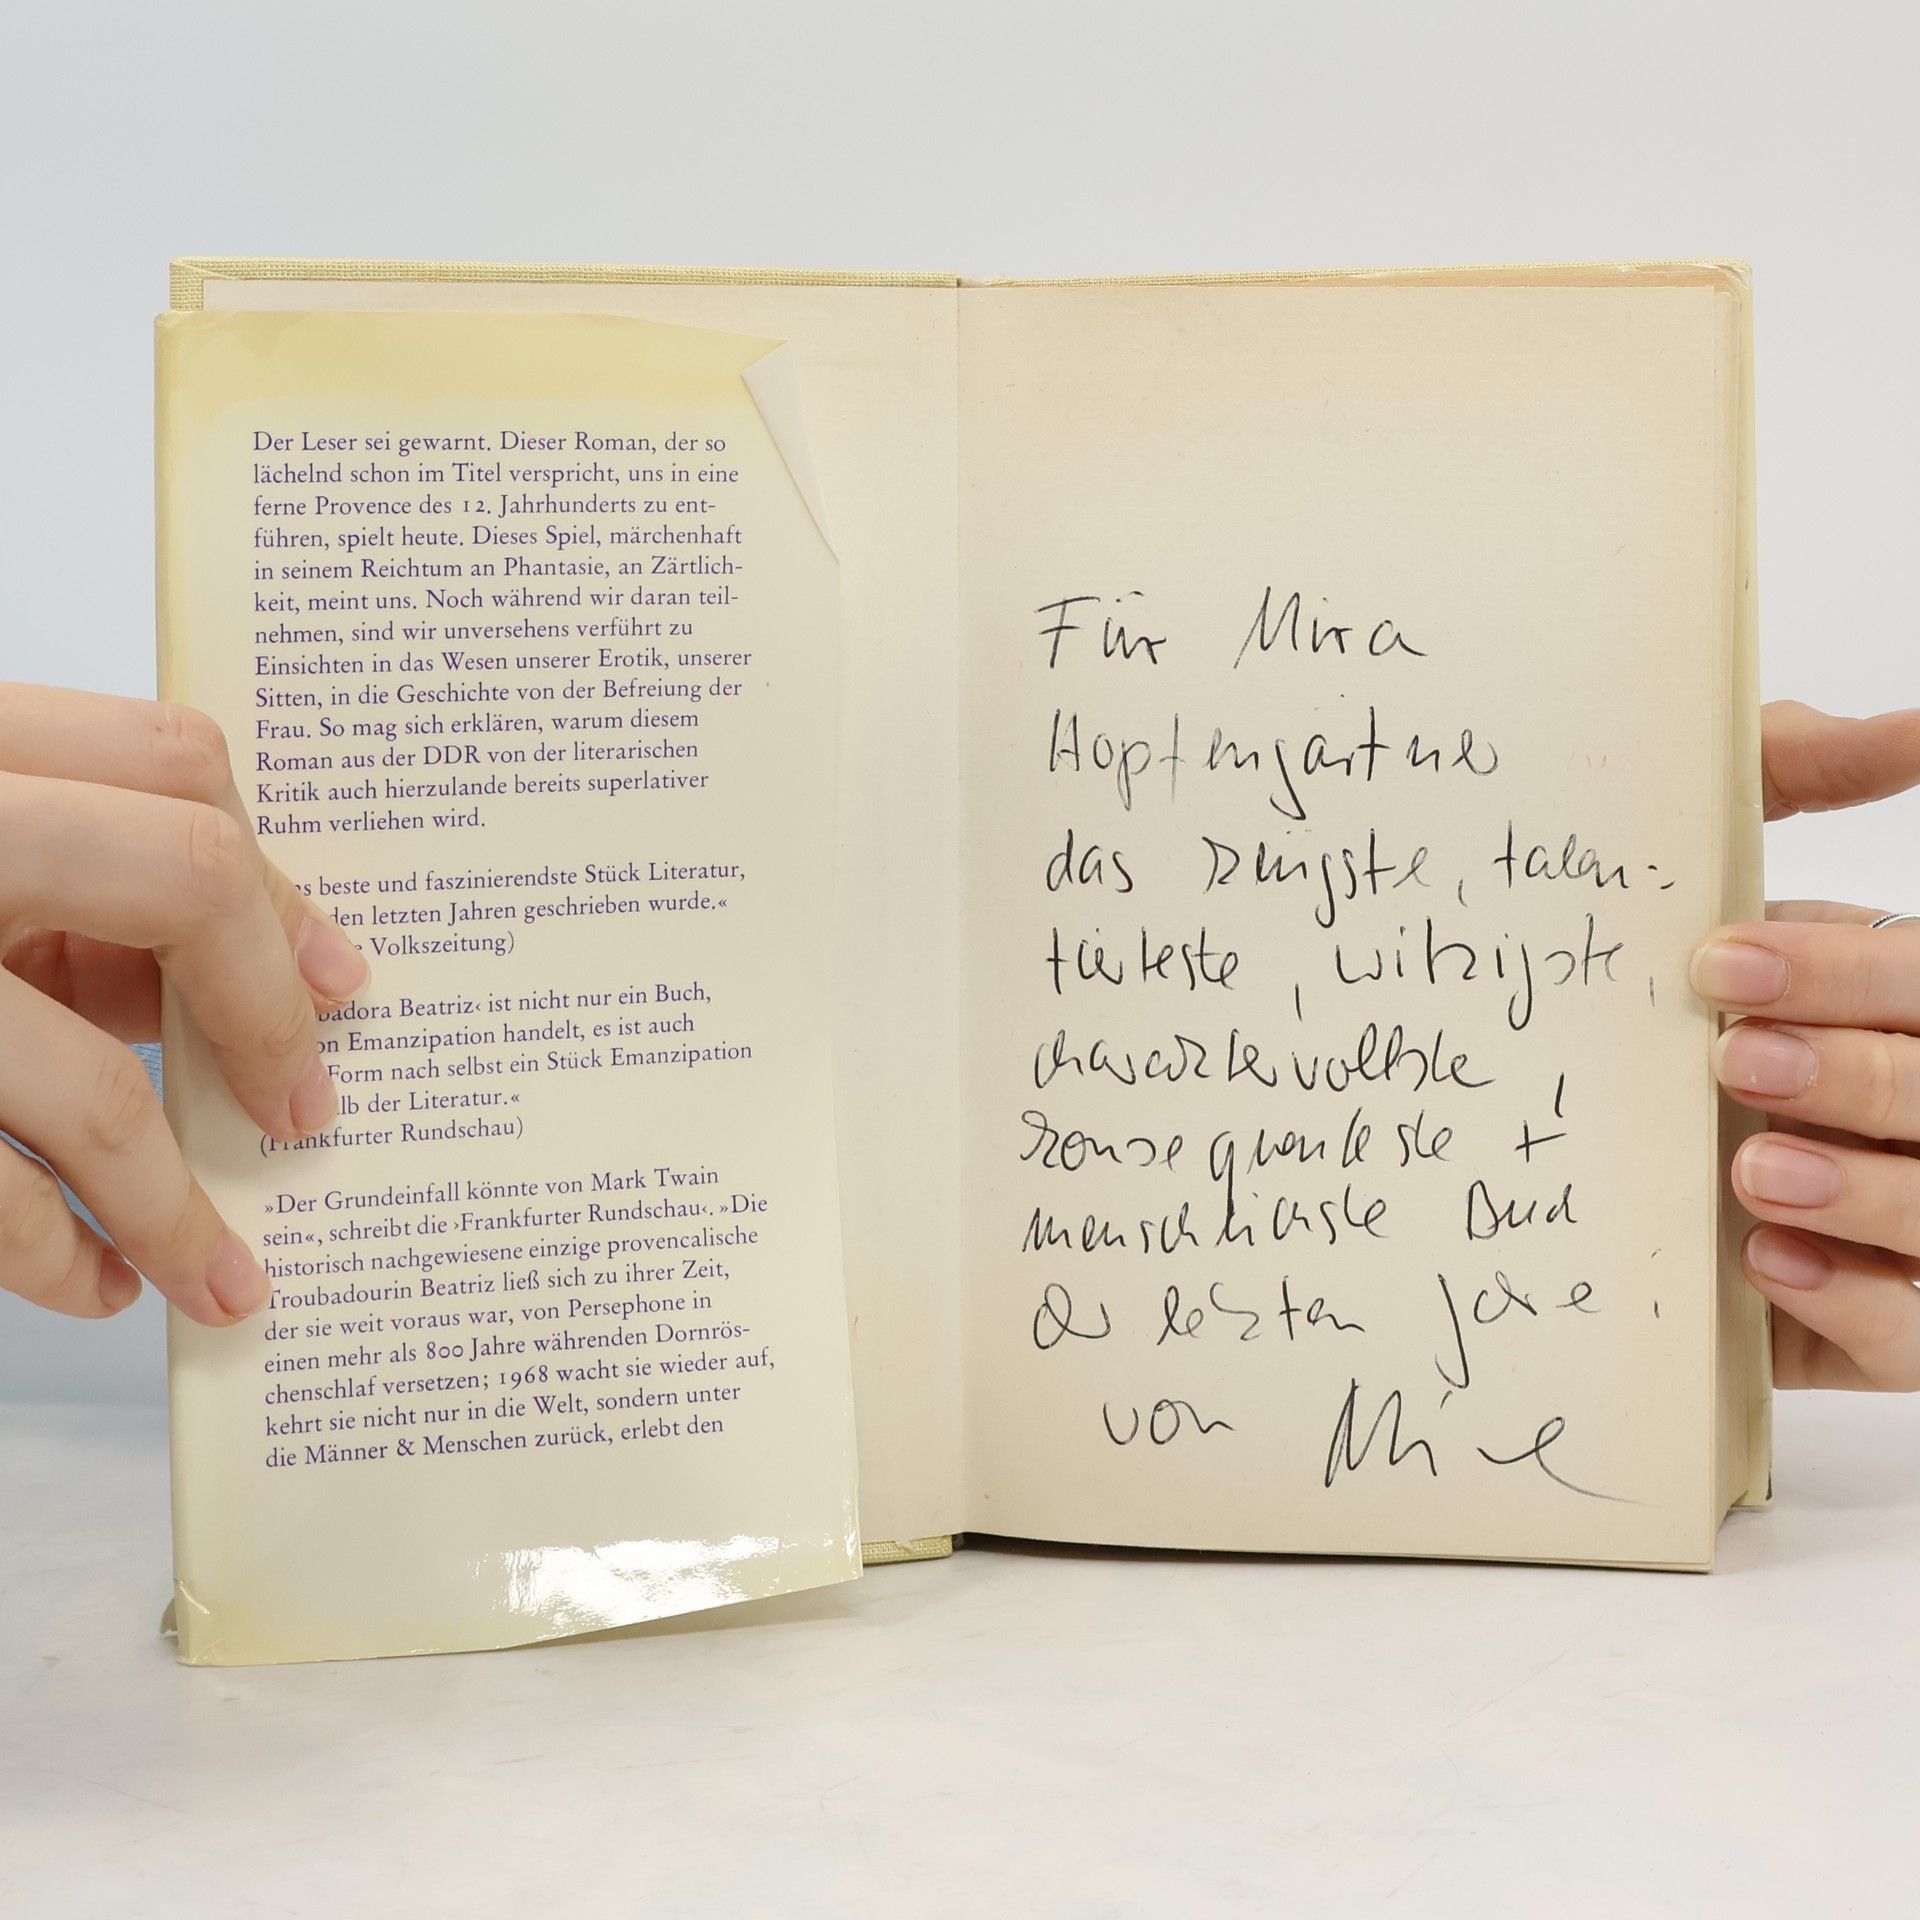 Der Leser sei gewarnt. Dieser Roman, der so
lächelnd schon im Titel verspricht, uns in eine
ferne Provence des 12. Jahrhunderts zu ent-
führen, spielt heute. Dieses Spiel, märchenhaft
in seinem Reichtum an Phantasie, an Zärtlich-
keit, meint uns. Noch während wir daran teil-
nehmen, sind wir unversehens verführt zu
Einsichten in das Wesen unserer Erotik, unserer
Sitten, in die Geschichte von der Befreiung der
Frau. So mag sich erklären, warum diesem
Roman aus der DDR von der literarischen
Kritik auch hierzulande bereits superlativer
Ruhm verliehen wird.
beste und faszinierendste Stück Literatur,
den letzten Jahren geschrieben wurde.«
Volkszeitung)
Beatriz‹ ist nicht nur ein Buch,
Emanzipation handelt, es ist auch
Form nach selbst ein Stück Emanzipation
der Literatur.«
(Frankfurter Rundschau)
»Der Grundeinfall könnte von Mark Twain
sein«, schreibt die ›Frankfurter Rundschau‹. »Die
historisch nachgewiesene einzige provencalische
Troubadourin Beatriz ließ sich zu ihrer Zeit,
der sie weit voraus war, von Persephone in
einen mehr als 800 Jahre währenden Dornrös-
chenschlaf versetzen; 1968 wacht sie wieder auf,
kehrt sie nicht nur in die Welt, sondern unter
die Männer & Menschen zurück, erlebt den
Für Mira
Hopfengärtner
das , talen-
tierteste, witzigste,
charaktervollste,
konsequenteste +
menschlichste Buch
der letzten Jahre:
von